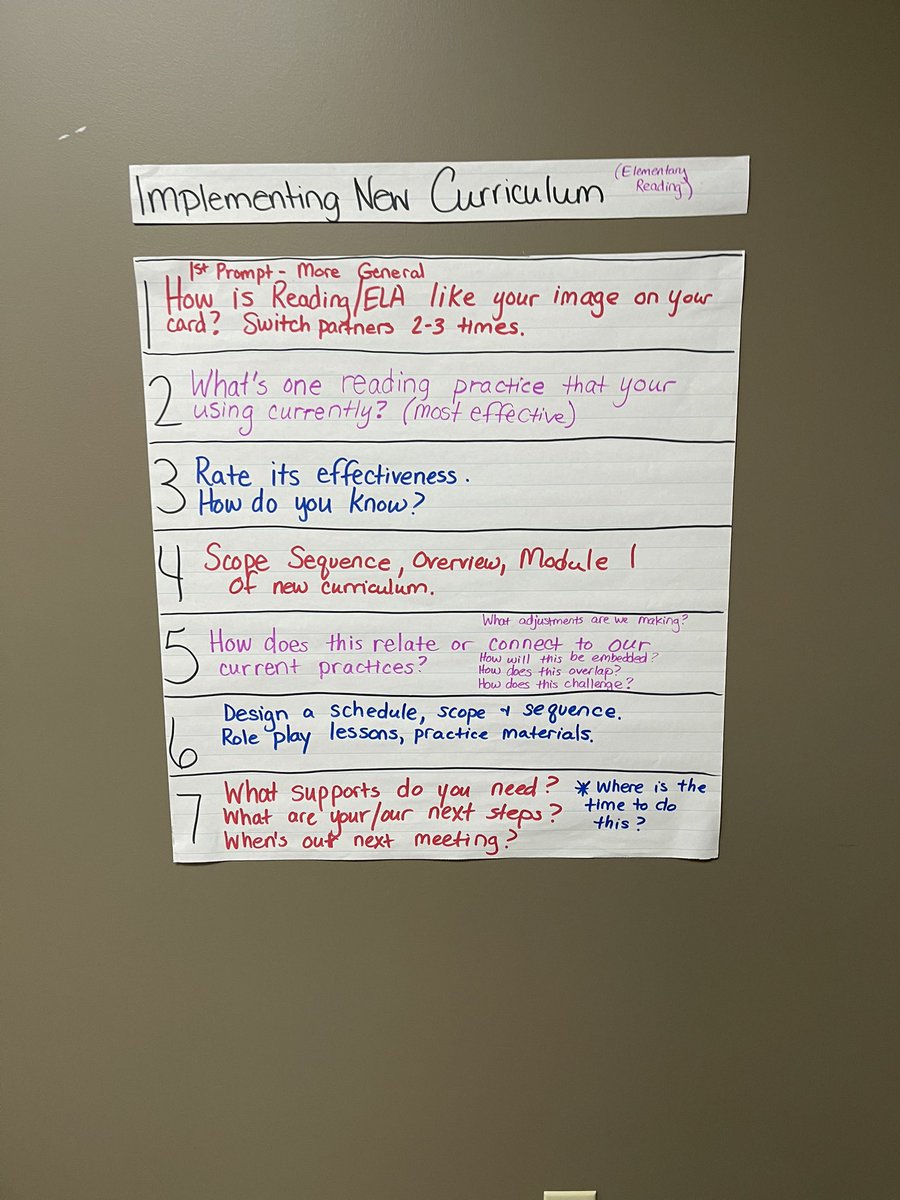 Implementing New Curriculum
(Elementary
Reading)
1st Prompt - More General
1 How is Reading/ELA like your image on your
card? Switch partners 2-3 times.
2 What's one reading practice that your
using currently? (most effective)
3 Rate its effectiveness.
How do you know?
4 Scope Sequence, Overview, Module 1
Of new curriculum.
5 How does this relate or connect to our
current practices?
What adjustments are we making?
How will this be embedded?
How does this overlap?
How does this challenge?
6 Design a schedule, scope + sequence.
Role play lessons, practice materials.
7 What supports do you need?
What are your/our next steps?
When's our next meeting?
* Where is the
time to do
this?